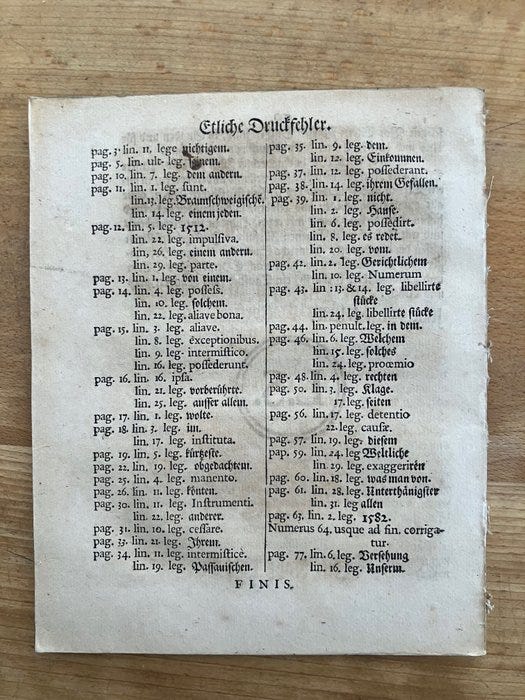 Etliche Druckfehler.
pag. 3. lin. 11. lege nichtigem.
pag. 5. lin. ult. leg. einem.
pag. 10. lin. 7. leg. dem andern.
pag. 11. lin. 1. leg. sunt.
lin. 13. leg. Braunschweigische.
lin. 14. leg. einem jeden.
pag. 12. lin. 5. leg. 1512.
lin. 22. leg. impulsiva.
lin, 26. leg. einem andern.
lin. 29. leg. parte.
pag. 13. lin. 1. leg. von einem.
pag. 14. lin. 4. leg. possess.
lin. 10. leg. solchem.
lin. 22. leg. aliave bona.
pag. 15. lin. 3. leg. aliave.
lin. 8. leg. exceptionibus.
lin. 9. leg. intermistico.
lin. 16. leg. possederunt.
pag. 16. lin. 16. ipsa.
lin. 21. leg. vorberührte.
lin. 25. leg. ausser allem.
pag. 17. lin. 1. leg. wolte.
pag. 18. lin. 3. leg. im.
lin. 17. leg. instituta.
pag. 19. lin. 5. leg. kürtzeste.
pag. 22. lin. 19. leg. obgedachtem.
pag. 25. lin. 4. leg. manento.
pag. 26. lin. 11. leg. könten.
pag. 30. lin. 11. leg. Instrumenti.
lin. 22. leg. anderer.
pag. 31. lin. 10. leg. cessare.
pag. 33. lin. 21. leg. Ihrem.
pag. 34. lin. 11. leg. intermisticè.
lin. 19. leg. Passauischen.
pag. 35. lin. 9. leg. dem.
lin. 12. leg. Einkommen.
pag. 37. lin. 12. leg. possederant.
pag. 38. lin. 14. leg. ihrem Gefallen.
pag. 39. lin. 1. leg. nicht.
lin. 2. leg. Hause.
lin. 6. leg. possedirt.
lin. 8. leg. es redet.
lin. 20. leg. vom.
pag. 42. lin. 2. leg. Gerichtlichem
lin. 10. leg. Numerum
pag. 43. lin : 13. & 14. leg. libellirte
stücke
lin. 24. leg. libellirte stücke
pag. 44. lin. penult. leg. in dem.
pag. 46. lin. 6. leg. Welchem
lin. 15. leg. solches
lin. 24. leg. proœmio
pag. 48. lin. 4. leg. rechten
pag. 50. lin. 3. leg. Klage.
17. leg. seiten
pag. 56. lin. 17. leg. detentio
22. leg. causæ.
pag. 57. lin. 19. leg. diesem
pap. 59. lin. 24. leg Weltliche
lin. 29. leg. exaggeriren
pag. 60. lin. 18. leg. was man von.
pag. 61. lin. 28. leg. Unterthänigster
lin. 31 leg allen
pag. 63. lin. 2. leg. 1582.
Numerus 64. usque ad fin. corriga-
tur.
pag. 77. lin. 6. leg. Versehung
lin. 16. leg. Unserm.
FINIS.